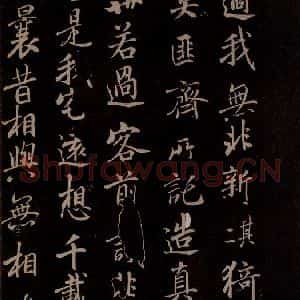 適我無非新猗
莫匪齊所託造真
若過客前識非
是我宅遠想千載
曩昔相與無相
Shufawang.CN